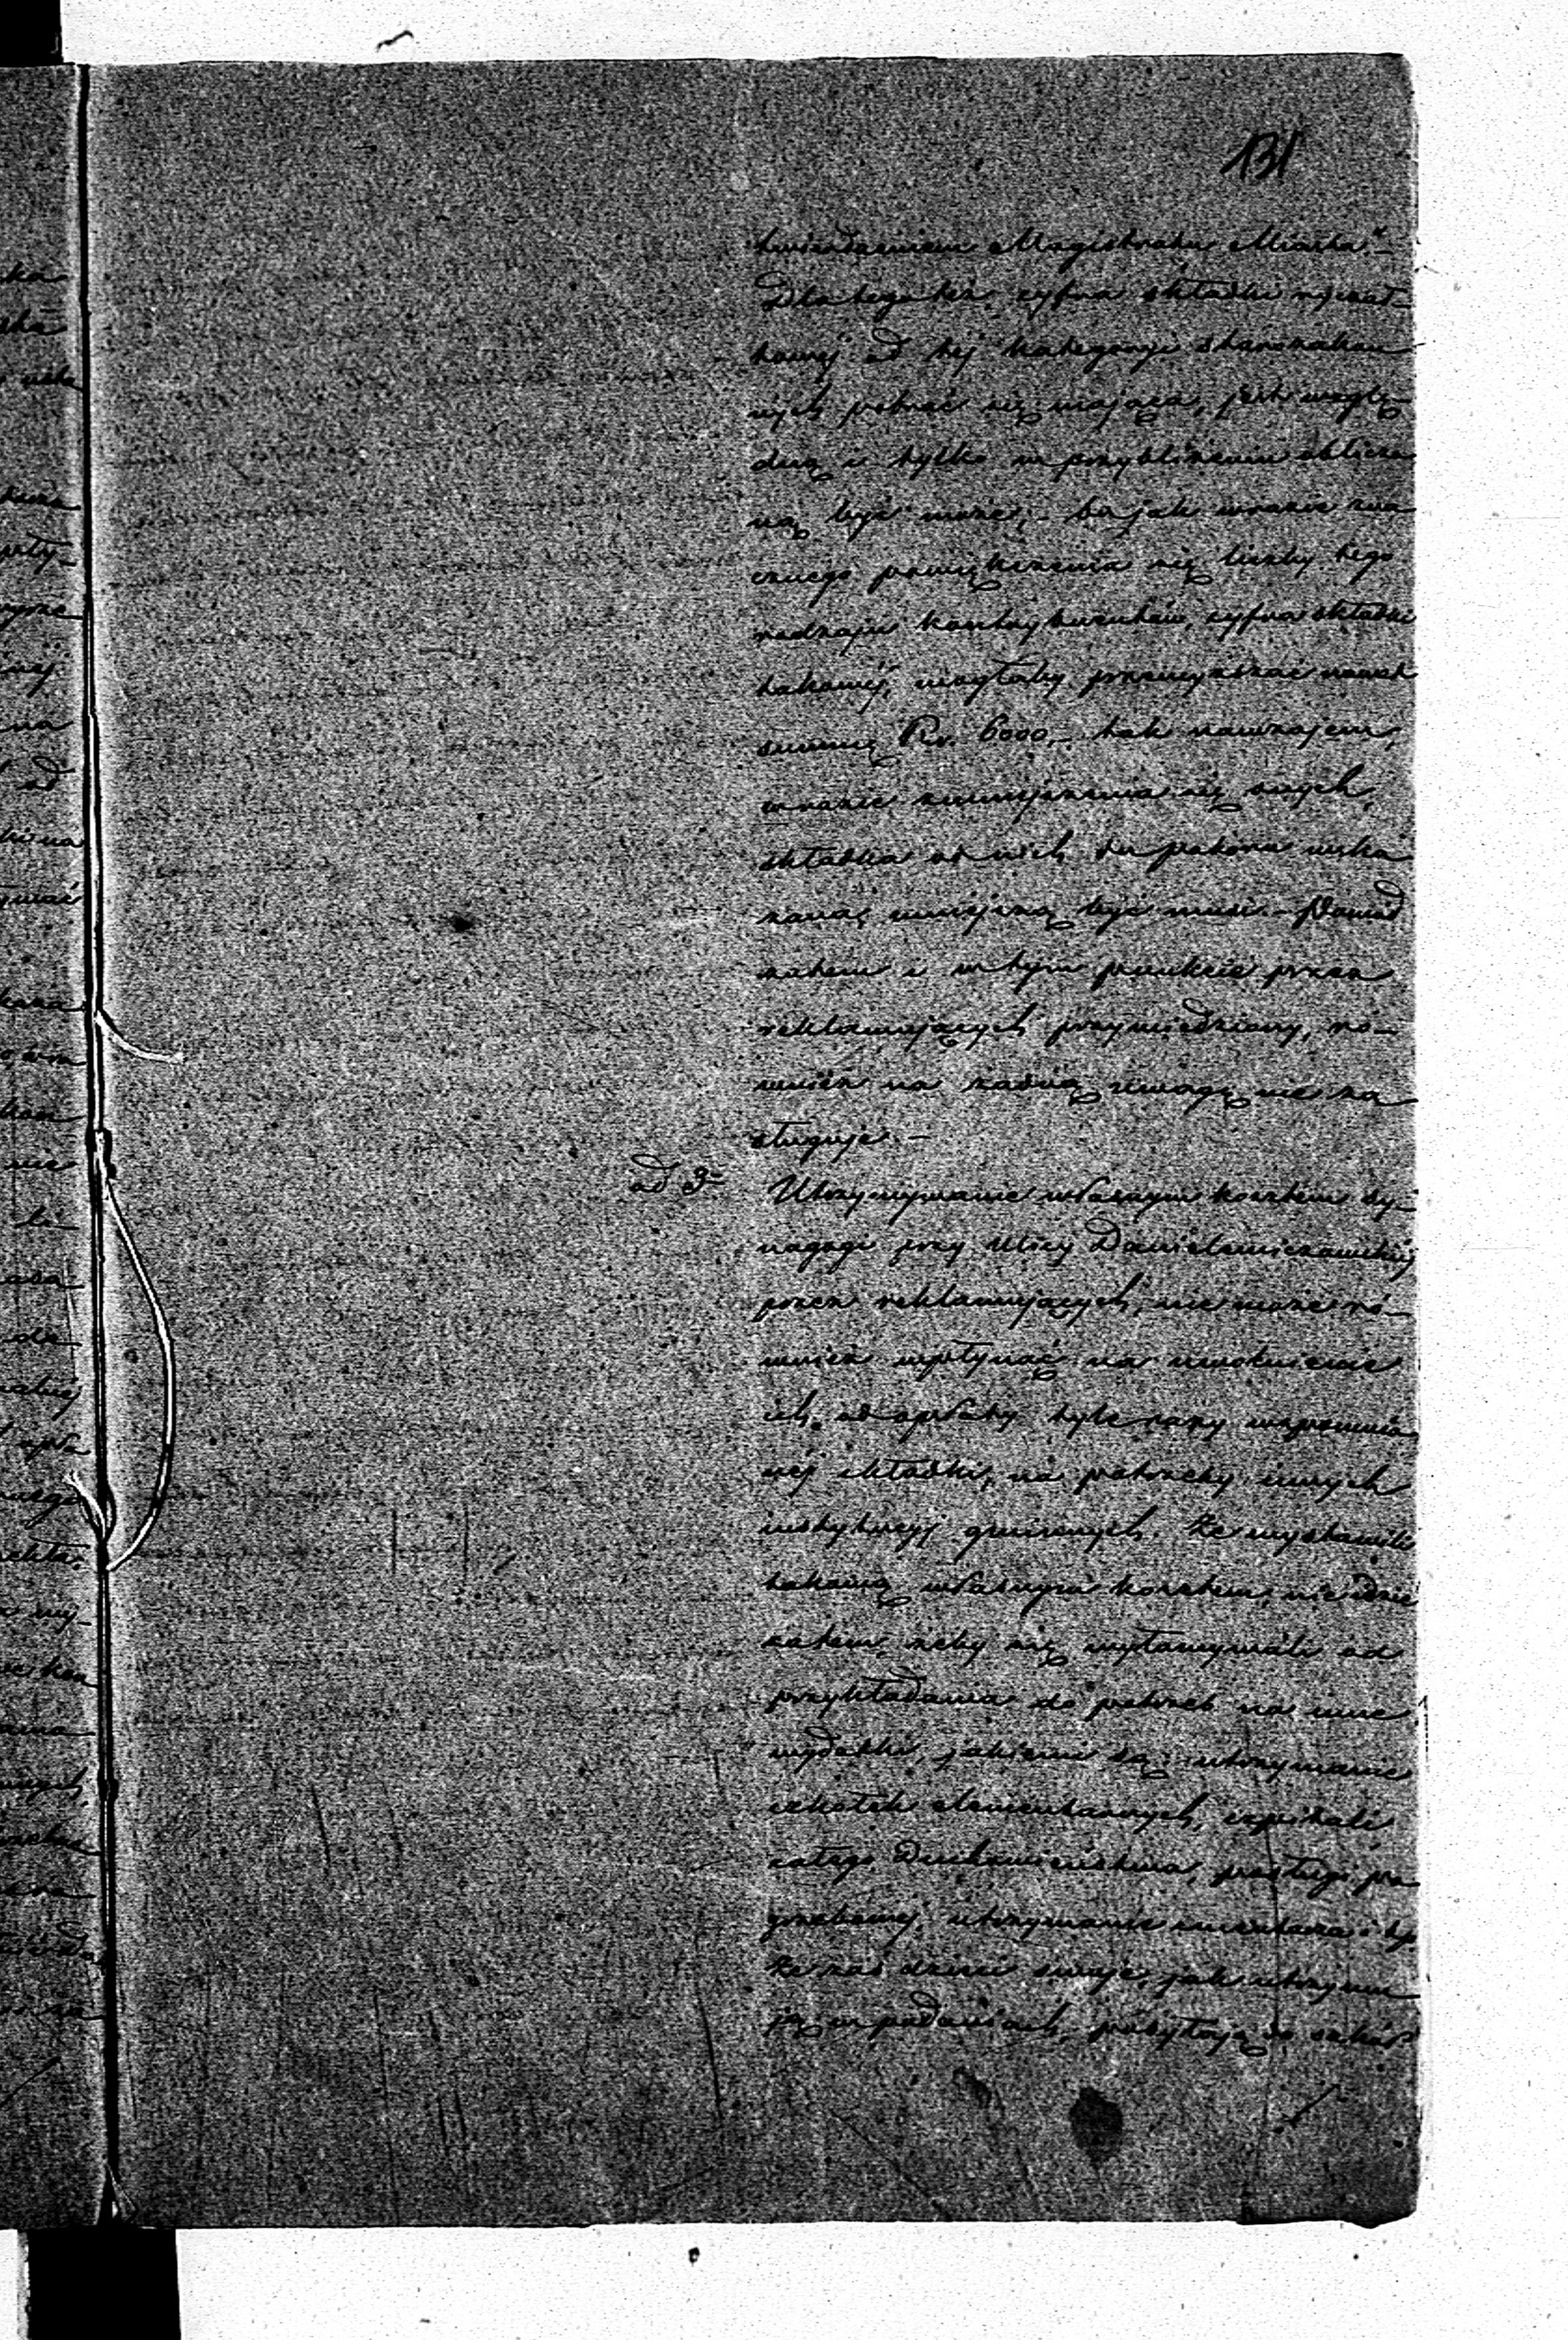 131
twierdzeniem Magistratu Miasta."–
Dla tego też, cyfra składki ryczał-
towej od tej kategoryi starozakon-
nych pobrać się mająca, jest wzglę-
dną i tylko w przybliżeniu obliczo-
ną być może; – bo jak w razie zna-
cznego powiększenia się liczby tego
rodzaju kontrybuentów, cyfra składki
takowej, mogłaby przewyższać nawet
summę Rs. 6000, – tak nawzajem,
w razie zmniejszenia się onych,
składka od nich do poboru wska-
zana, mniejszą być musi. – Powód
zatem i w tym punkcie przez
reklamujących przywiedziony, ró-
wnież na żadną uwagę nie za-
sługuje. –
ad 3
Utrzymywanie własnym kosztem sy-
nagogi przy Ulicy Danielewiczowskiej
przez reklamujących, nie może ró-
wnież wpłynąć na uwolnienie
ich od opłaty tyle razy wspomnio-
nej składki, na potrzeby innych
instytucyj gminnych. Że wystawili
takową własnym kosztem, nie idzie
zatem, żeby się wyłamywali od
przykładania do potrzeb na inne
wydatki, jakiemi są: utrzymanie
szkółek elementarnych, szpitali,
całego Duchowieństwa, posługi po-
grzebowej, utrzymanie cmentarza i t.p.
Że zaś dzieci swoje, jak utrzymu-
ją w podaniach, posyłają do szkół